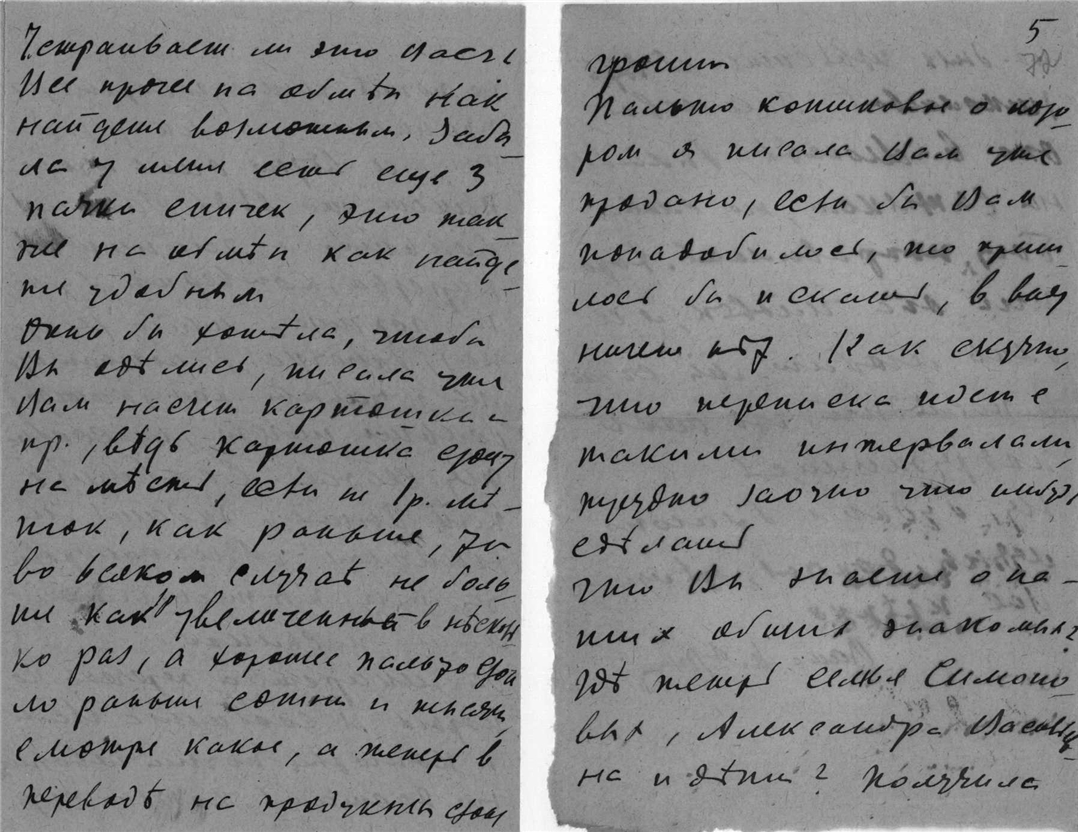 Устраивает ли это Васъ?
Все проче на обмѣн как
найдете возможным. Забы-
ла у меня есть еще 3
пачки спичек, это так
же на обмѣн как найде-
те удобным
Очень бы хотѣла, чтобы
Вы одѣлись, писала уже
Вам насчет картошки и
пр., вѣдь картошка стоит
на мѣстѣ, если не 1р. мѣ-
шок, как раньше, то
во всяком случаѣ не боль-
ше как увеличенная в нѣсколь
ко раз, а хорошее пальто стои
ло раньше сотни и тысячи,
смотря какое, а теперь в
переводѣ на продукты стоит
5
гроши
Пальто котиковое о кото-
ром я писала Вам уже
продано, если бы Вам
понадобилось, то приш
лось бы искать, в виду
ничего нѣт. Как скучно,
что переписка идет с
такими интервалами,
трудно заочно что нибудь
сдѣлать
Что Вы знаете о на-
ших общих знакомых?
Гдѣ теперь семья Симоно
вых, Александра Васильев-
на и дѣти? Получила